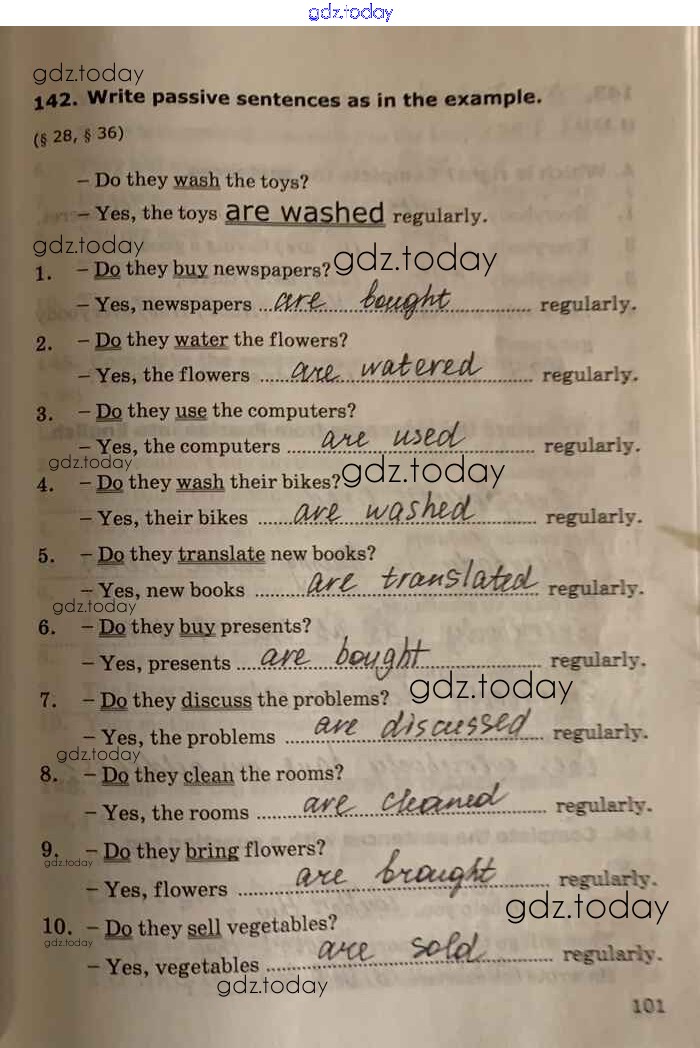 gdz.today
gdz.today
142. Write passive sentences as in the example.
(§ 28, § 36)
– Do they wash the toys?
– Yes, the toys are washed regularly.
gdz.today
1. – Do they buy newspapers? gdz.today
– Yes, newspapers are bought regularly.
2. – Do they water the flowers?
– Yes, the flowers are watered regularly.
3. – Do they use the computers?
– Yes, the computers are used regularly.
gdz.today
4. – Do they wash their bikes? gdz.today
– Yes, their bikes are washed regularly.
5. – Do they translate new books?
– Yes, new books are translated regularly.
gdz.today
6. – Do they buy presents?
– Yes, presents are bought regularly.
7. – Do they discuss the problems? gdz.today
– Yes, the problems are discussed regularly.
gdz.today
8. – Do they clean the rooms?
– Yes, the rooms are cleaned regularly.
9. – Do they bring flowers?
gdz.today
– Yes, flowers are brought regularly.
gdz.today
10. – Do they sell vegetables?
gdz.today
– Yes, vegetables are sold regularly.
gdz.today
101